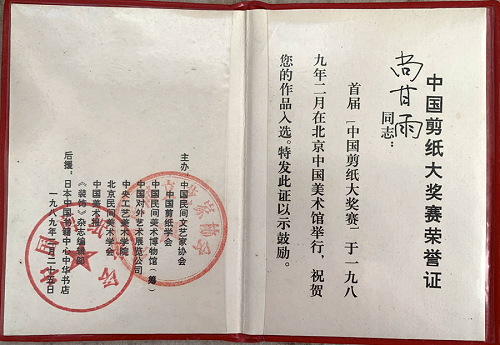 中国剪纸大奖赛荣誉证
尚甘雨
同志：
首届「中国剪纸大奖赛」于一九八
九年二月在北京中国美术馆举行，祝贺
您的作品入选。特发此证以示鼓励。
主办：中国民间文艺家协会
中国剪纸学会
中国民间美术博物馆（筹）
中国对外艺术展览公司
中央工艺美术学院
北京民间美术学会
中国美术报
《装饰》杂志编辑部
后援：日本中国剪
中心中华书店
一九八九年
月二十五日